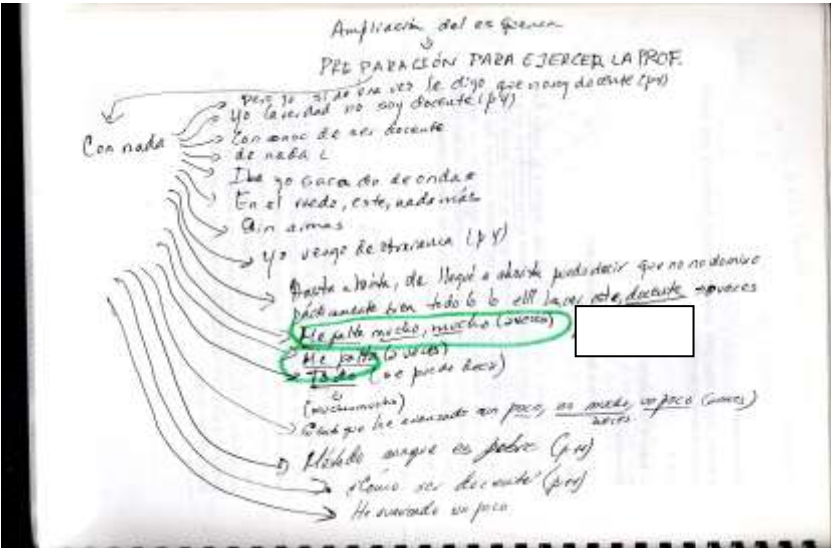 Ampliación del esquema
PREPARACIÓN PARA EJERCER LA PROF.
pero yo si de una vez le digo que no soy docente (py)
Yo la verdad no soy docente (py)
Con nada
Con amor de ser docente
de nada
Iba yo sacado de onda
En el ruedo, este, nada más
Sin armas
yo vengo de (py)
Hasta ahorita, de llegué a ahorita puedo decir que no no domino
prácticamente bien todo lo hacer este, docente veces
Me falta mucho, mucho (2 veces)
Me falta (2 veces)
Todo (se puede decir)
(muchomucho)
que he avanzado un poco, no mucho, un poco (veces)
veces
Método aunque es pobre
Cómo ser docente
He avanzado un poco